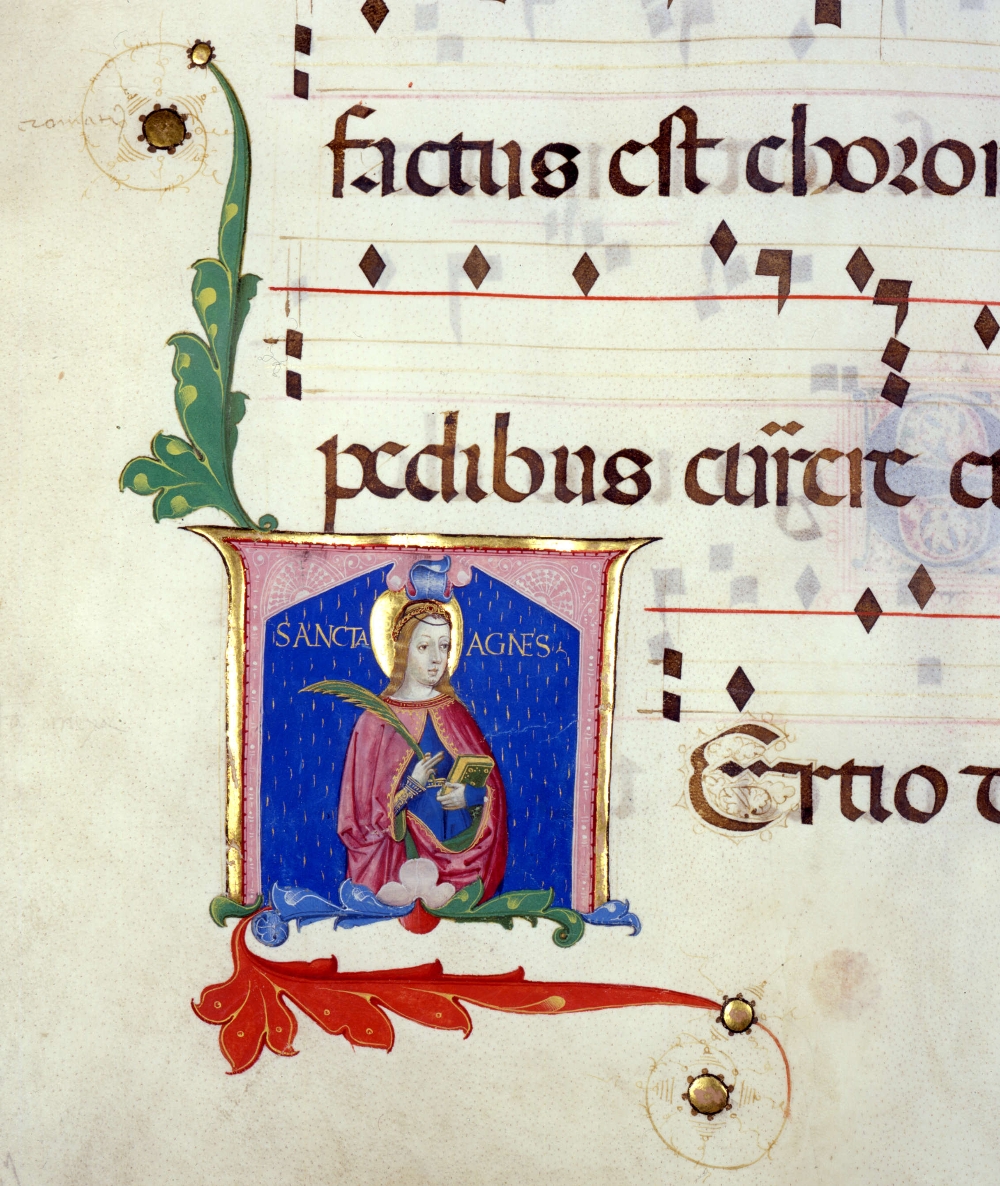 factus est choro
pedibus currere et
SANCTA AGNES
Ertio